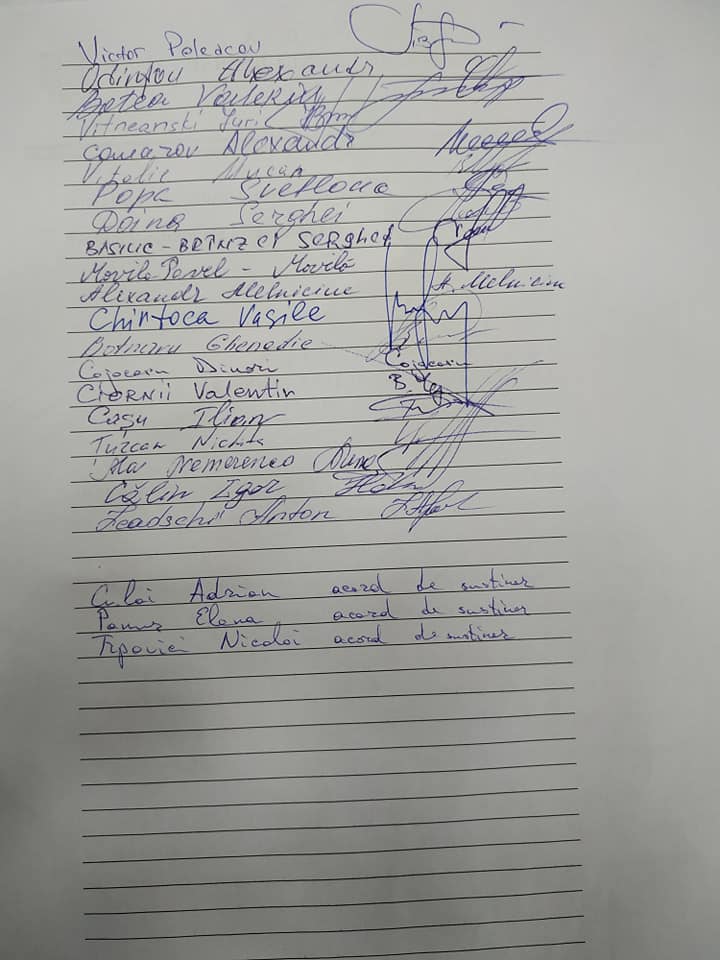 Victor Poleacov
Odințov Alexandr
Botea Valeriu
Vitneanski Iuri
Comarov Alexandr
Vitalie Mucan
Popa Svetlana
Doina Serghei
BASIUC-BRINZEI SERGHEI
Movila Pavel - Movilă
Alexandr Melniciuc A. Melniciuc
Chirtoca Vasile
Botnaru Ghenadie
Cojocaru Dinari Cojocaru
CIORNII Valentin B.
Cașu Ilian
Țurcan Nichita
Ala Nemerenco
Călin Igor
Zeadschii Anton
Culai Adrian acord de susținer
Elena acord de susținer
Nicolai acord de susținer